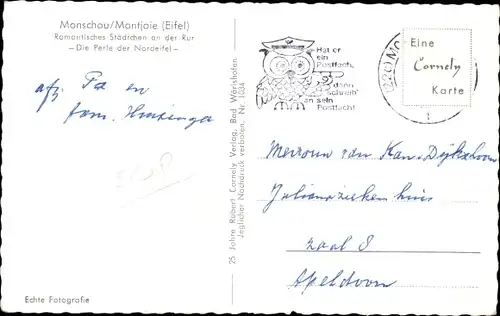 Monschau/Montjoie (Eifel)
Romantisches Städtchen an der Rur
- Die Perle der Nordeifel -
afz.
fam. Huizinga
Echte Fotografie
25 Jahre Robert Cornely Verlag, Bad Wörishofen
Jeglicher Nachdruck verboten. Nr. 1034
Hat er
ein
Postfach,
dann
schreib'
an sein
Postfach!
Eine
Cornely
Karte
Mevrouw van
Julianaziekenhuis
zaal 8
Apeldoorn